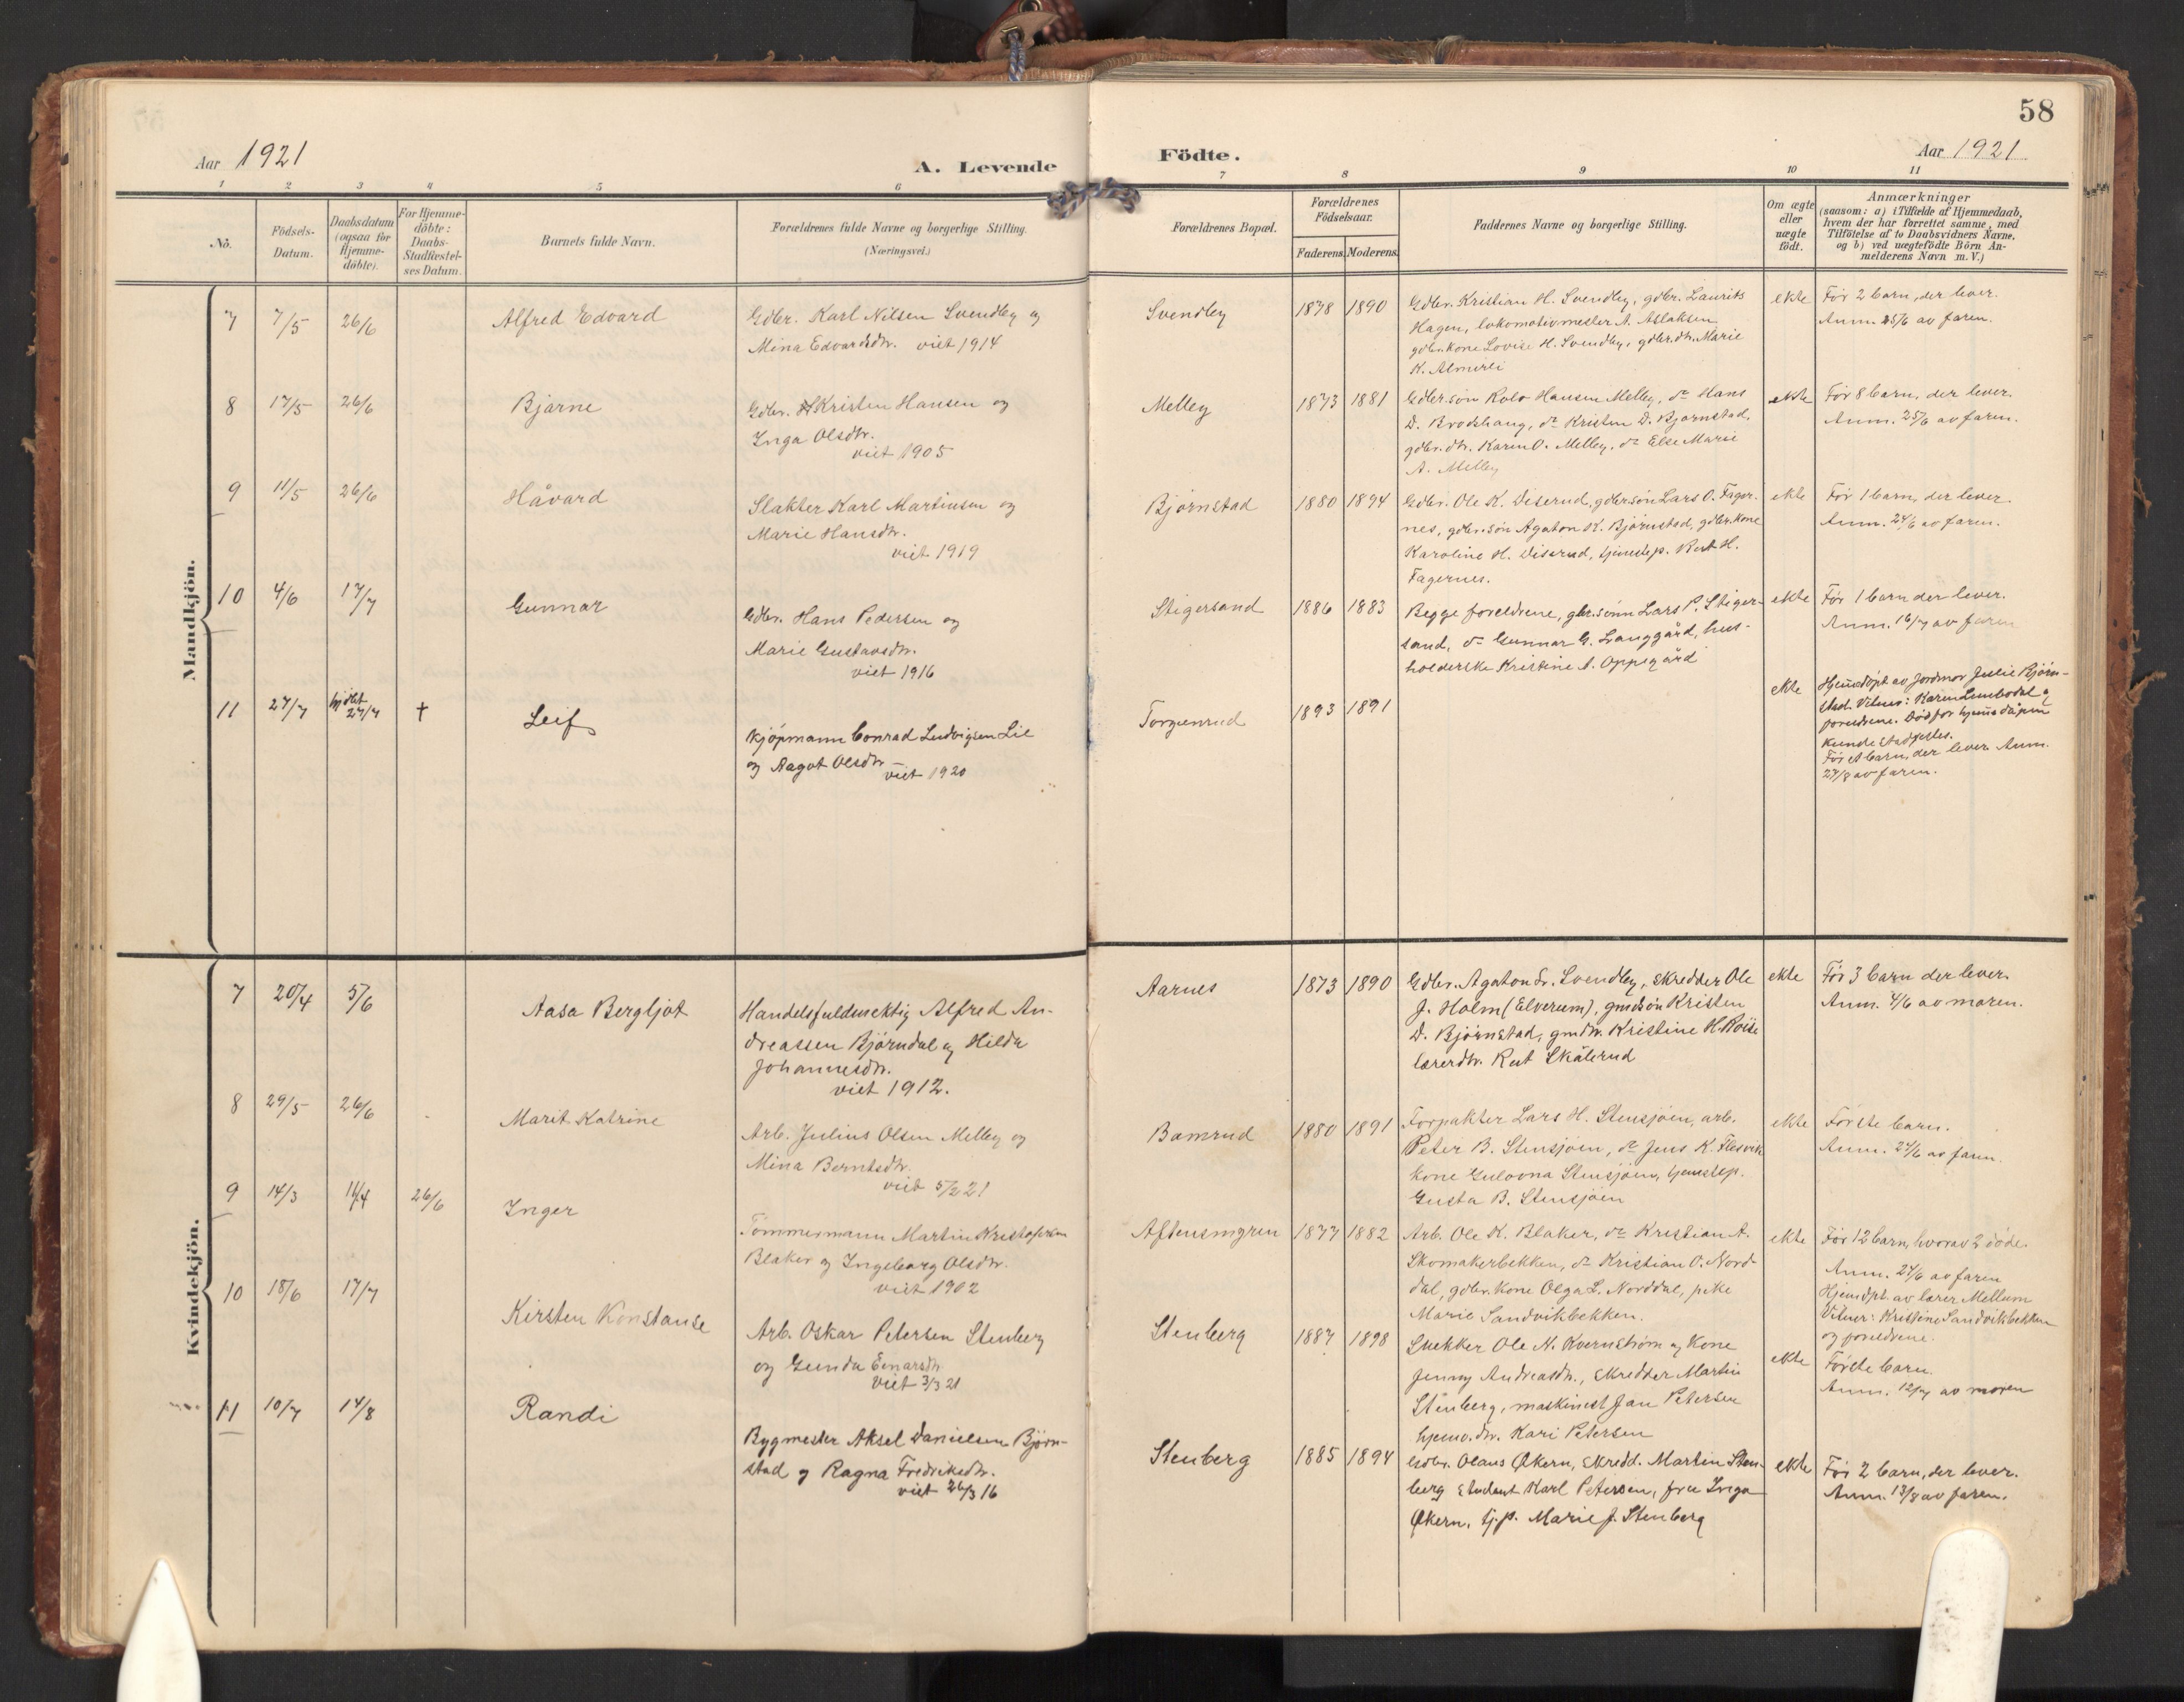 58
Aar 1921
A. Levende
Födte.
Aar 1921
1 2 3 4 5 6 7 8 9 10 11
No.
Födsels-
Datum.
Daabsdatum
(ogsaa for
Hjemme-
döbte).
For Hjemme-
döbte:
Daabs-
Stadfæstel-
ses Datum.
Barnets fulde Navn.
Forældrenes fulde Navne og borgerlige Stilling.
(Næringsvei.)
Forældrenes Bopæl.
Forældrenes
Födselsaar.
Faderens. Moderens.
Faddernes Navne og borgerlige Stilling.
Om ægte
eller
uægte
födt.
Anmærkninger
(saasom: a) i Tilfælde af Hjemmedaab,
hvem der har forrettet samme, med
Tilföielse af to Daabsvidners Navne,
og b) ved uægtefödte Börn An-
melderens Navn m. V.)
Mandkjön.
7 7/5 26/6 Alfred Edvard
Gdbr. Karl Nilsen Svendby og
Mina Edvardsdtr. viet 1914
Svendby 1878 1890
Gdbr. Kristian H. Svendby, gdbr. Laurits
Hagen, lokomotivmester A. Aslaksen,
gdbr.kone Lovise H. Svendby, gdbr.dtr. Marie
K. Almerli
ekte
Før 2 barn, der lever.
Anm. 25/6 av faren.
8 17/5 26/6 Bjarne
Gdbr. Kristen Hansen og
Inga Olsdtr.
viet 1905
Melley 1873 1881
Gdbr.søn Rolv Hansen Melley, do Hans
D. Brodshaug, do Kristen D. Bjørnstad,
gdbr.dtr. Karen O. Melley, do Else Marie
A. Melley
ekte
Før 8 barn, der lever.
Anm. 25/6 av faren.
9 11/5 26/6 Håvard
Slakter Karl Martinsen og
Marie Hansdtr.
viet 1919
Bjørnstad 1880 1894
Gdbr. Ole K. Diserud, gdbr.søn Lars O. Fager-
nes, gdbr.søn Agaton K. Bjørnstad, gdbr.kone
Karoline H. Diserud, tjenestep. Rut H.
Fagernes.
ekte
Før 1 barn, der lever.
Anm. 24/6 av faren.
10 4/6 17/7 Gunnar
Gdbr. Hans Pedersen og
Marie Gustavsdtr.
viet 1916
Stigersand 1886 1883
Begge foreldrene, gbr.sønn Lars P. Stiger-
sand, do Gunnar G. Langgård, hus-
holderske Kristine A. Oppegård
ekte
Før 1 barn der lever.
Anm. 16/7 av faren
11 27/7 hjdbt 27/7 † Leif
Kjøpmann Conrad Ludvigsen Lie
og Aagot Olsdtr
viet 1920
Torgunrud 1893 1891
ekte
Hjemdøpt av Jordmor Julie Bjørn-
stad. Vitner: Karen Lundbodal og
foreldrene. Død før hjemmedåpen
kunde stadfestes.
Før et barn, der lever. Anm.
27/8 av faren.
Kvindekjön.
7 20/4 5/6 Aasa Bergljot
Handelsfuldmektig Alfred An-
dreassen Bjørndal og Hilda
Johannesdtr.
viet 1912.
Aarnes 1873 1890
Gdbr. Agaton Sr. Svendby, skredder Ole
J. Holm (Elverum), gmdsøn Kristen
D. Bjørnstad, gmdtr. Kristine H. Roise
lærerdtr. Rut Skålerud
ekte
Før 3 barn der lever.
Anm. 4/6 av moren.
8 29/5 26/6 Marit Katrine
Arb. Julius Olsen Melley og
Mina Berntsdtr.
viet 5/2 21
Bamrud 1880 1891
Forpakter Lars H. Stensjøen, arb.
Peter B. Stensjøen, do Jens K. Flesvik
kone Gulovna Stensjøen, tjenestep.
Gusta B. Stensjøen
ekte
Første barn.
Anm. 24/6 av faren.
9 14/3 11/4 26/6 Inger
Tømmermann Martin Kristofersen
Blaker og Ingeborg Olsdtr.
viet 1902
Aftensmyren 1877 1882
Arb. Ole K. Blaker, do Kristian A.
Skomakerbekken, do Kristian O. Nord-
dal, gdbr.kone Olga L. Norddal, pike
Marie Sandvikbekken.
ekte
Før 12 barn, hvorav 2 døde.
Anm. 24/6 av faren
Hjemdpt. av lærer Mellum
Vitner: Kristine Sandvikbekken
og foreldrene.
10 18/6 17/7 Kirsten Konstanse
Arb. Oskar Petersen Stenberg
og Gunda Einarsdtr.
viet 3/3 21
Stenberg 1887 1898
Snekker Ole N. Kvernstrøm og kone
Jenny Andreasdtr., skredder Martin
Stenberg, maskinist Jan Petersen
hjemv. dtr. Kari Petersen
ekte
Første barn.
Anm. 12/7 av moren
11 10/7 14/8 Randi
Bygmester Aksel Danielsen Bjørn-
stad og Ragna Fredriksdtr.
viet 26/3 16
Stenberg 1885 1894
Gdbr. Olaus Økern, skredd. Martin Sten-
berg student Karl Petersen, frue Inga
Økern, tj.p. Marie J. Stenberg
ekte
Før 2 barn, der lever.
Anm. 13/8 av faren.